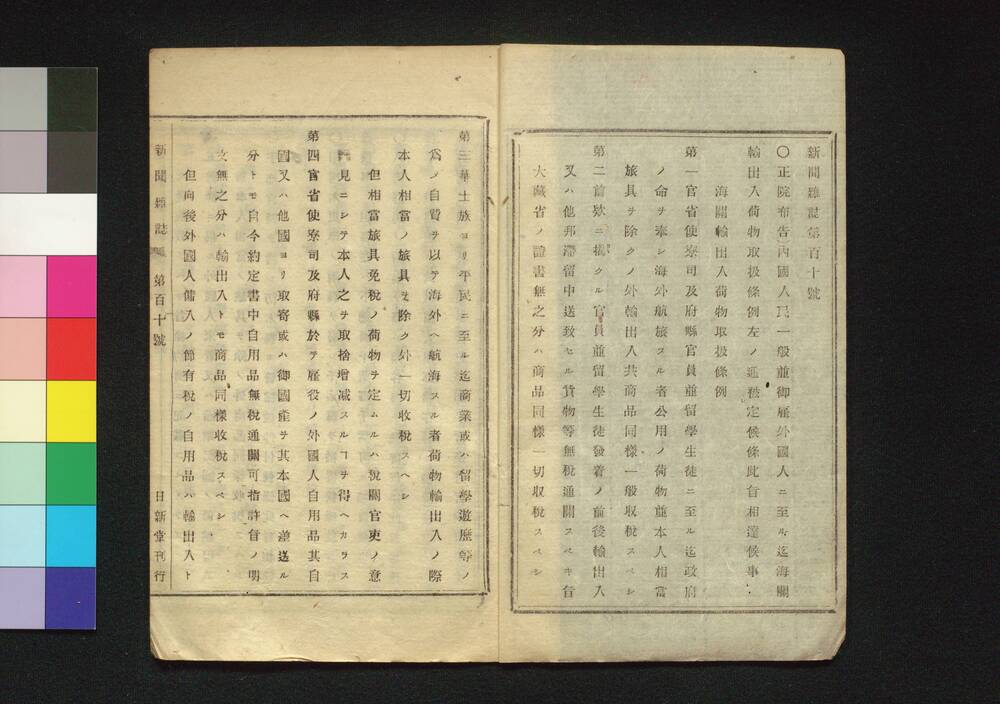 新聞雜誌第百十號
〇正院布告內國人民一般並御雇外國人ニ至ル迄海關
輸出入荷物取扱條例左ノ通被定候條此旨相達候事
海關輸出入荷物取扱條例
第一官省使寮司及府縣官員並留學生徒ニ至ル迄政府
ノ命ヲ奉シ海外航旅スル者公用ノ荷物並本人相當
旅具ヲ除クノ外輸出入共商品同樣一般收稅スヘシ
第二前欵ニ揭クル官員並留學生徒發着ノ前後輸出入
又ハ他邦滯留中送致セル貨物等無稅通關スヘキ旨
大藏省ノ證書無之分ハ商品同樣一切收稅スヘシ
第三華士族ヨリ平民ニ至ル迄商業或ハ留學遊歷等ノ
爲メ自費ヲ以テ海外ヘ航海スル者荷物輸出入ノ際
本人相當ノ旅具ヲ除ク外一切收稅スヘシ
但相當旅具免稅ノ荷物ヲ定ムルハ稅關官吏ノ意
見ニシテ本人之ヲ取捨增减スルヿヲ得ヘカラス
第四官省使寮司及府縣於テ雇役ノ外國人自用品其自
國又ハ他國ヨリ取寄或ハ御國產ヲ其本國ヘ差送ル
分トモ自今約定書中自用品無稅通關可指許旨ノ明
文無之分ハ輸出入トモ商品同樣收稅スヘシ
但向後外國人傭入ノ節有稅ノ自用品ハ輸出入ト
新聞雜誌 第百十號 日新堂刊行